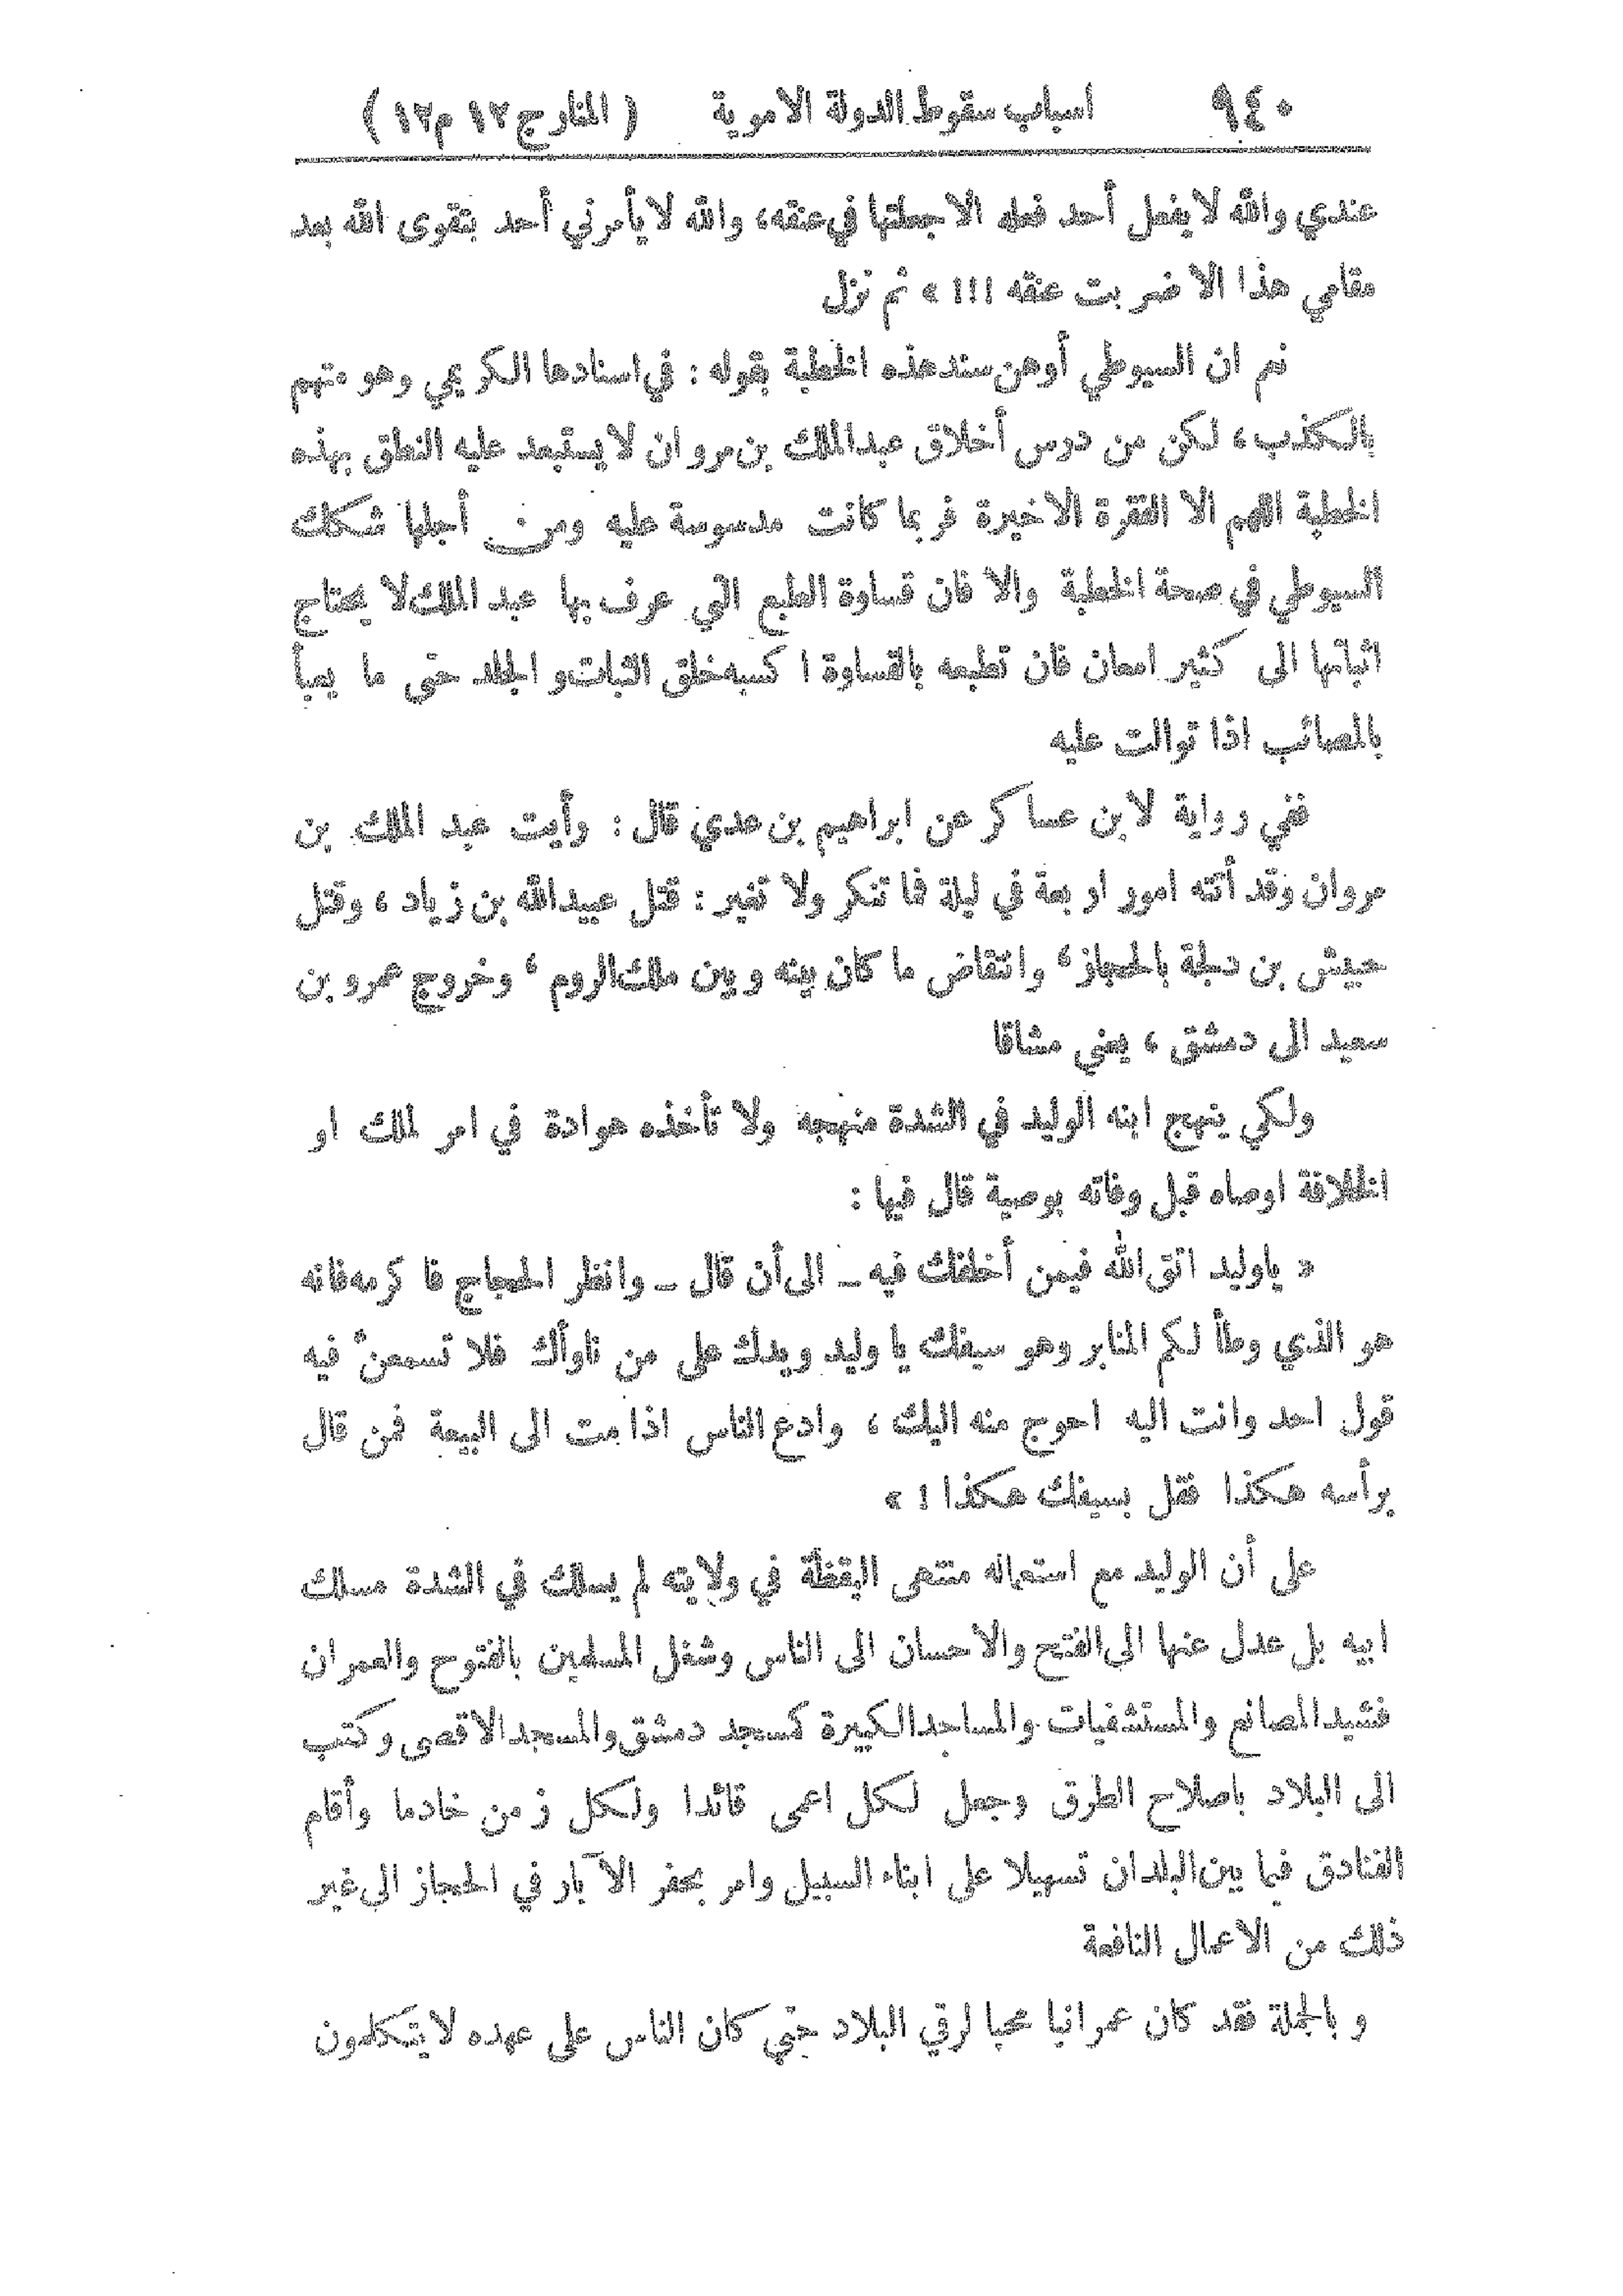 ٩٤٠ اسباب سقوط الدولة الاموية ( المنار ج ١٢ م ١٢ )
عندي والله لا يفعل أحد فعله الا جعلتها في عنقه، والله لا يأمرني أحد بتقوى الله بعد
مقامي هذا الا ضربت عنقه !!! » ثم نزل
نعم ان السيوطي أوهن سند هذه الخطبة بقوله : في اسنادها الكريمي وهو متهم
بالكذب ، لكن من درس أخلاق عبد الملك بن مروان لا يستبعد عليه النطق بهذه
الخطبة اللهم الا الفقرة الاخيرة فربما كانت مدسوسة عليه ومن أجلها شكك
السيوطي في صحة الخطبة والا فان قساوة الطبع التي عرف بها عبد الملك لا يحتاج
اثباتها الى كثير امعان فان تطبعه بالقساوة اكسبه خلق الثبات والجلد حتى ما يعبأ
بالمصائب اذا توالت عليه
ففي رواية لابن عساكر عن ابراهيم بن عدي قال : رأيت عبد الملك بن
مروان وقد أتته امور اربعة في ليلة فما تنكر ولا تغير : قتل عبيد الله بن زياد ، وقتل
حبيش بن دلجة بالحجاز ، وانتقاض ما كان بينه وبين ملك الروم ، وخروج عمرو بن
سعيد الى دمشق ، يعني مشاقا
ولكي ينهج ابنه الوليد في الشدة منهجه ولا تأخذه هوادة في امر لملك او
الخلافة اوصاه قبل وفاته بوصية قال فيها :
« ياوليد اتق الله فيمن أخلفك فيه ــ الى أن قال ــ وانظر الحجاج فاكرمه فانه
هو الذي وطأ لكم المنابر وهو سيفك يا وليد ويدك على من ناوأك فلا تسمعنّ فيه
قول احد وانت اليه احوج منه اليك ، وادع الناس اذا مت الى البيعة فمن قال
برأسه هكذا فقل بسيفك هكذا ! »
على أن الوليد مع استعماله منتهى اليقظة في ولايته لم يسلك في الشدة مسلك
ابيه بل عدل عنها الى الفتح والاحسان الى الناس وشغل المسلمين بالفتوح والعمران
فشيد المصانع والمستشفيات والمساجد الكبيرة كمسجد دمشق والمسجد الاقصى وكتب
الى البلاد باصلاح الطرق وجعل لكل اعمى قائدا ولكل زمن خادما وأقام
الفنادق فيما بين البلدان تسهيلا على ابناء السبيل وامر بحفر الآبار في الحجاز الى غير
ذلك من الاعمال النافعة
وبالجملة فقد كان عمرانيا محبا لرقي البلاد حتى كان الناس على عهده لا يتكلمون